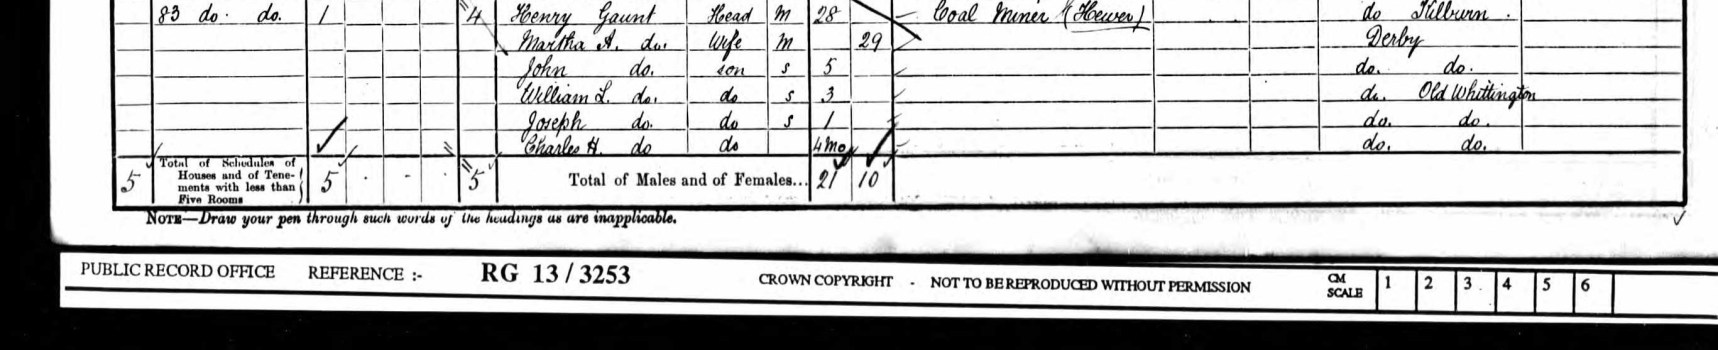 83 do. do. 1 4 Henry Gaunt Head M 28 Coal Miner (Hewer) do Kilburn
Martha A. do. Wife M 29 Derby
John do. son s 5 do. do.
William L. do. do s 3 do. Old Whittington
Joseph do. do s 1 do. do.
Charles H. do do 4mo do. do.
5 Total of Schedules of Houses and of Tene-ments with less than Five Rooms 5 5 Total of Males and of Females... 21 10
NOTE—Draw your pen through such words of the headings as are inapplicable.
PUBLIC RECORD OFFICE REFERENCE :- RG 13 / 3253 CROWN COPYRIGHT - NOT TO BE REPRODUCED WITHOUT PERMISSION CM SCALE 1 2 3 4 5 6